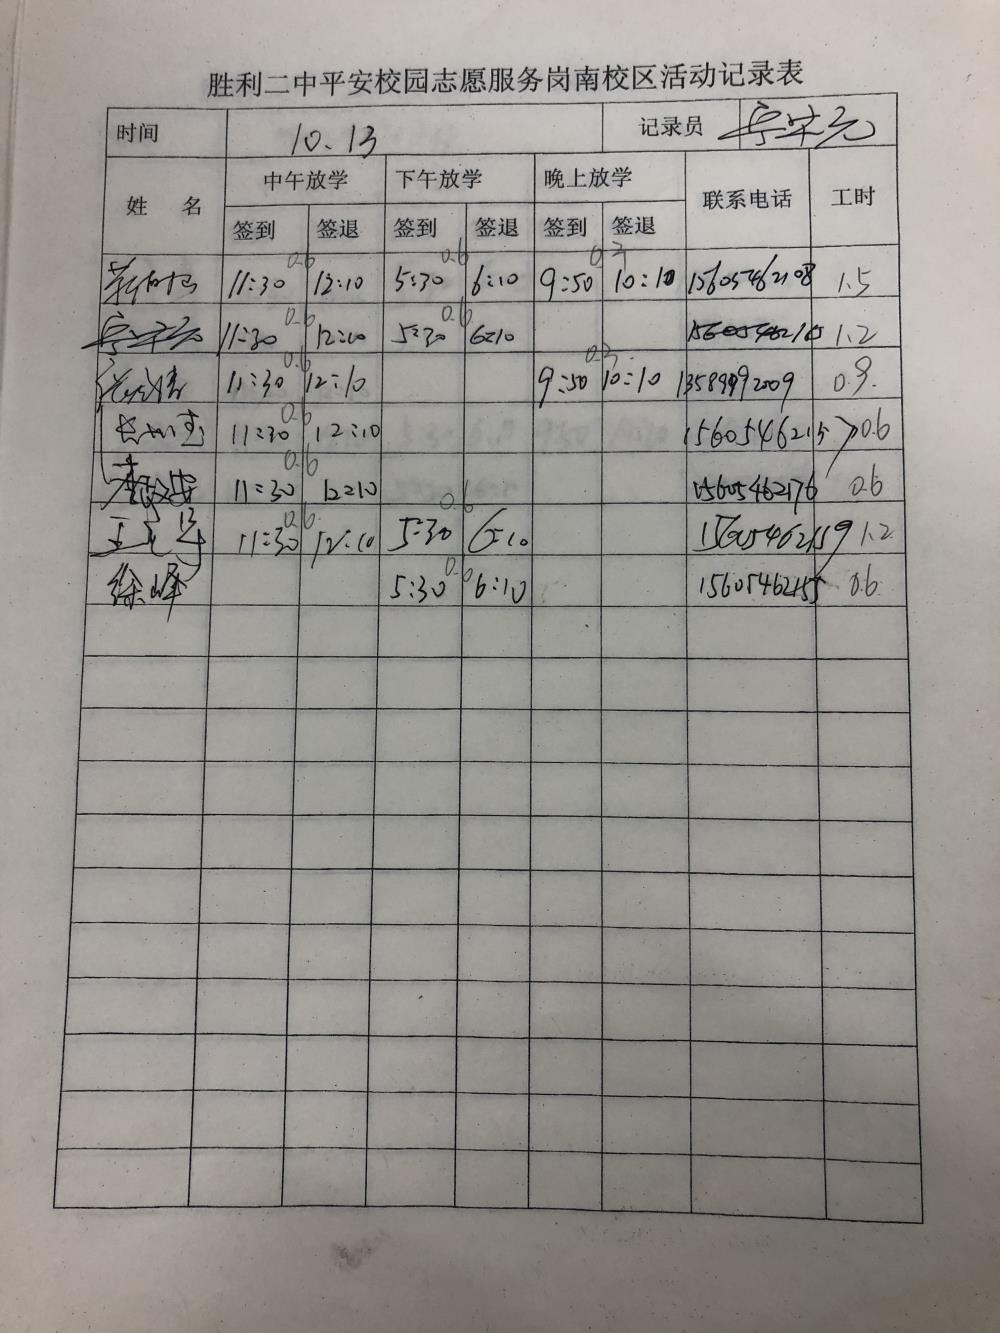 胜利二中平安校园志愿服务岗南校区活动记录表
时间 10.13 记录员
姓 名 中午放学 下午放学 晚上放学 联系电话 工时
签到 签退 签到 签退 签到 签退
0.6 0.6 0.3
11:30 12:10 5:30 6:10 9:50 10:10 15605462108 1.5
0.6 0.6
11:30 12:10 5:30 6:10 1.2
0.6 0.3
11:30 12:10 9:50 10:10 0.9
0.6
11:30 12:10 0.6
0.6
11:30 12:10 15605462176 0.6
0.6 0.6
11:30 12:10 5:30 6:10 15605462159 1.2
0.6
徐峰 5:30 6:10 15605462155 0.6